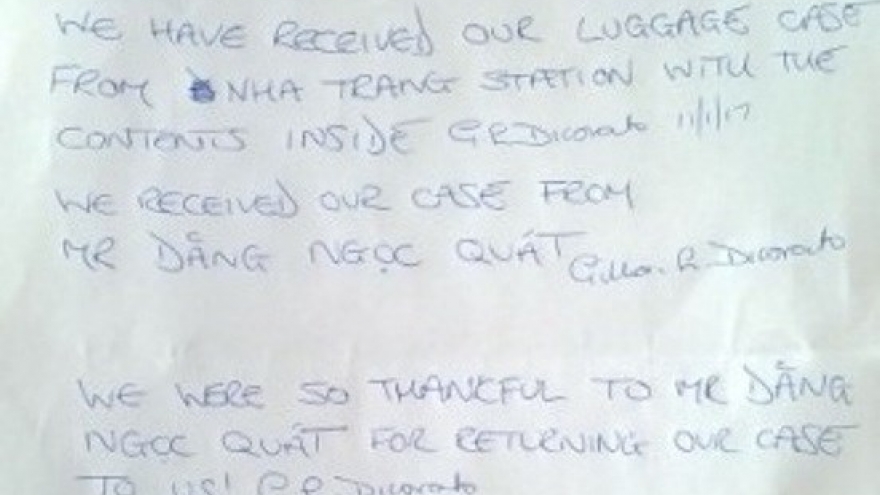 WE HAVE RECEIVED OUR LUGGAGE CASE
FROM NHA TRANG STATION WITH THE
CONTENTS INSIDE G R Dicorato 11/1/17
WE RECEIVED OUR CASE FROM
MR DẰNG NGỌC QUÁT R. Dicorato
WE WERE SO THANKFUL TO MR DẰNG
NGỌC QUÁT FOR RETURNING OUR CASE
TO US! G R Dicorato